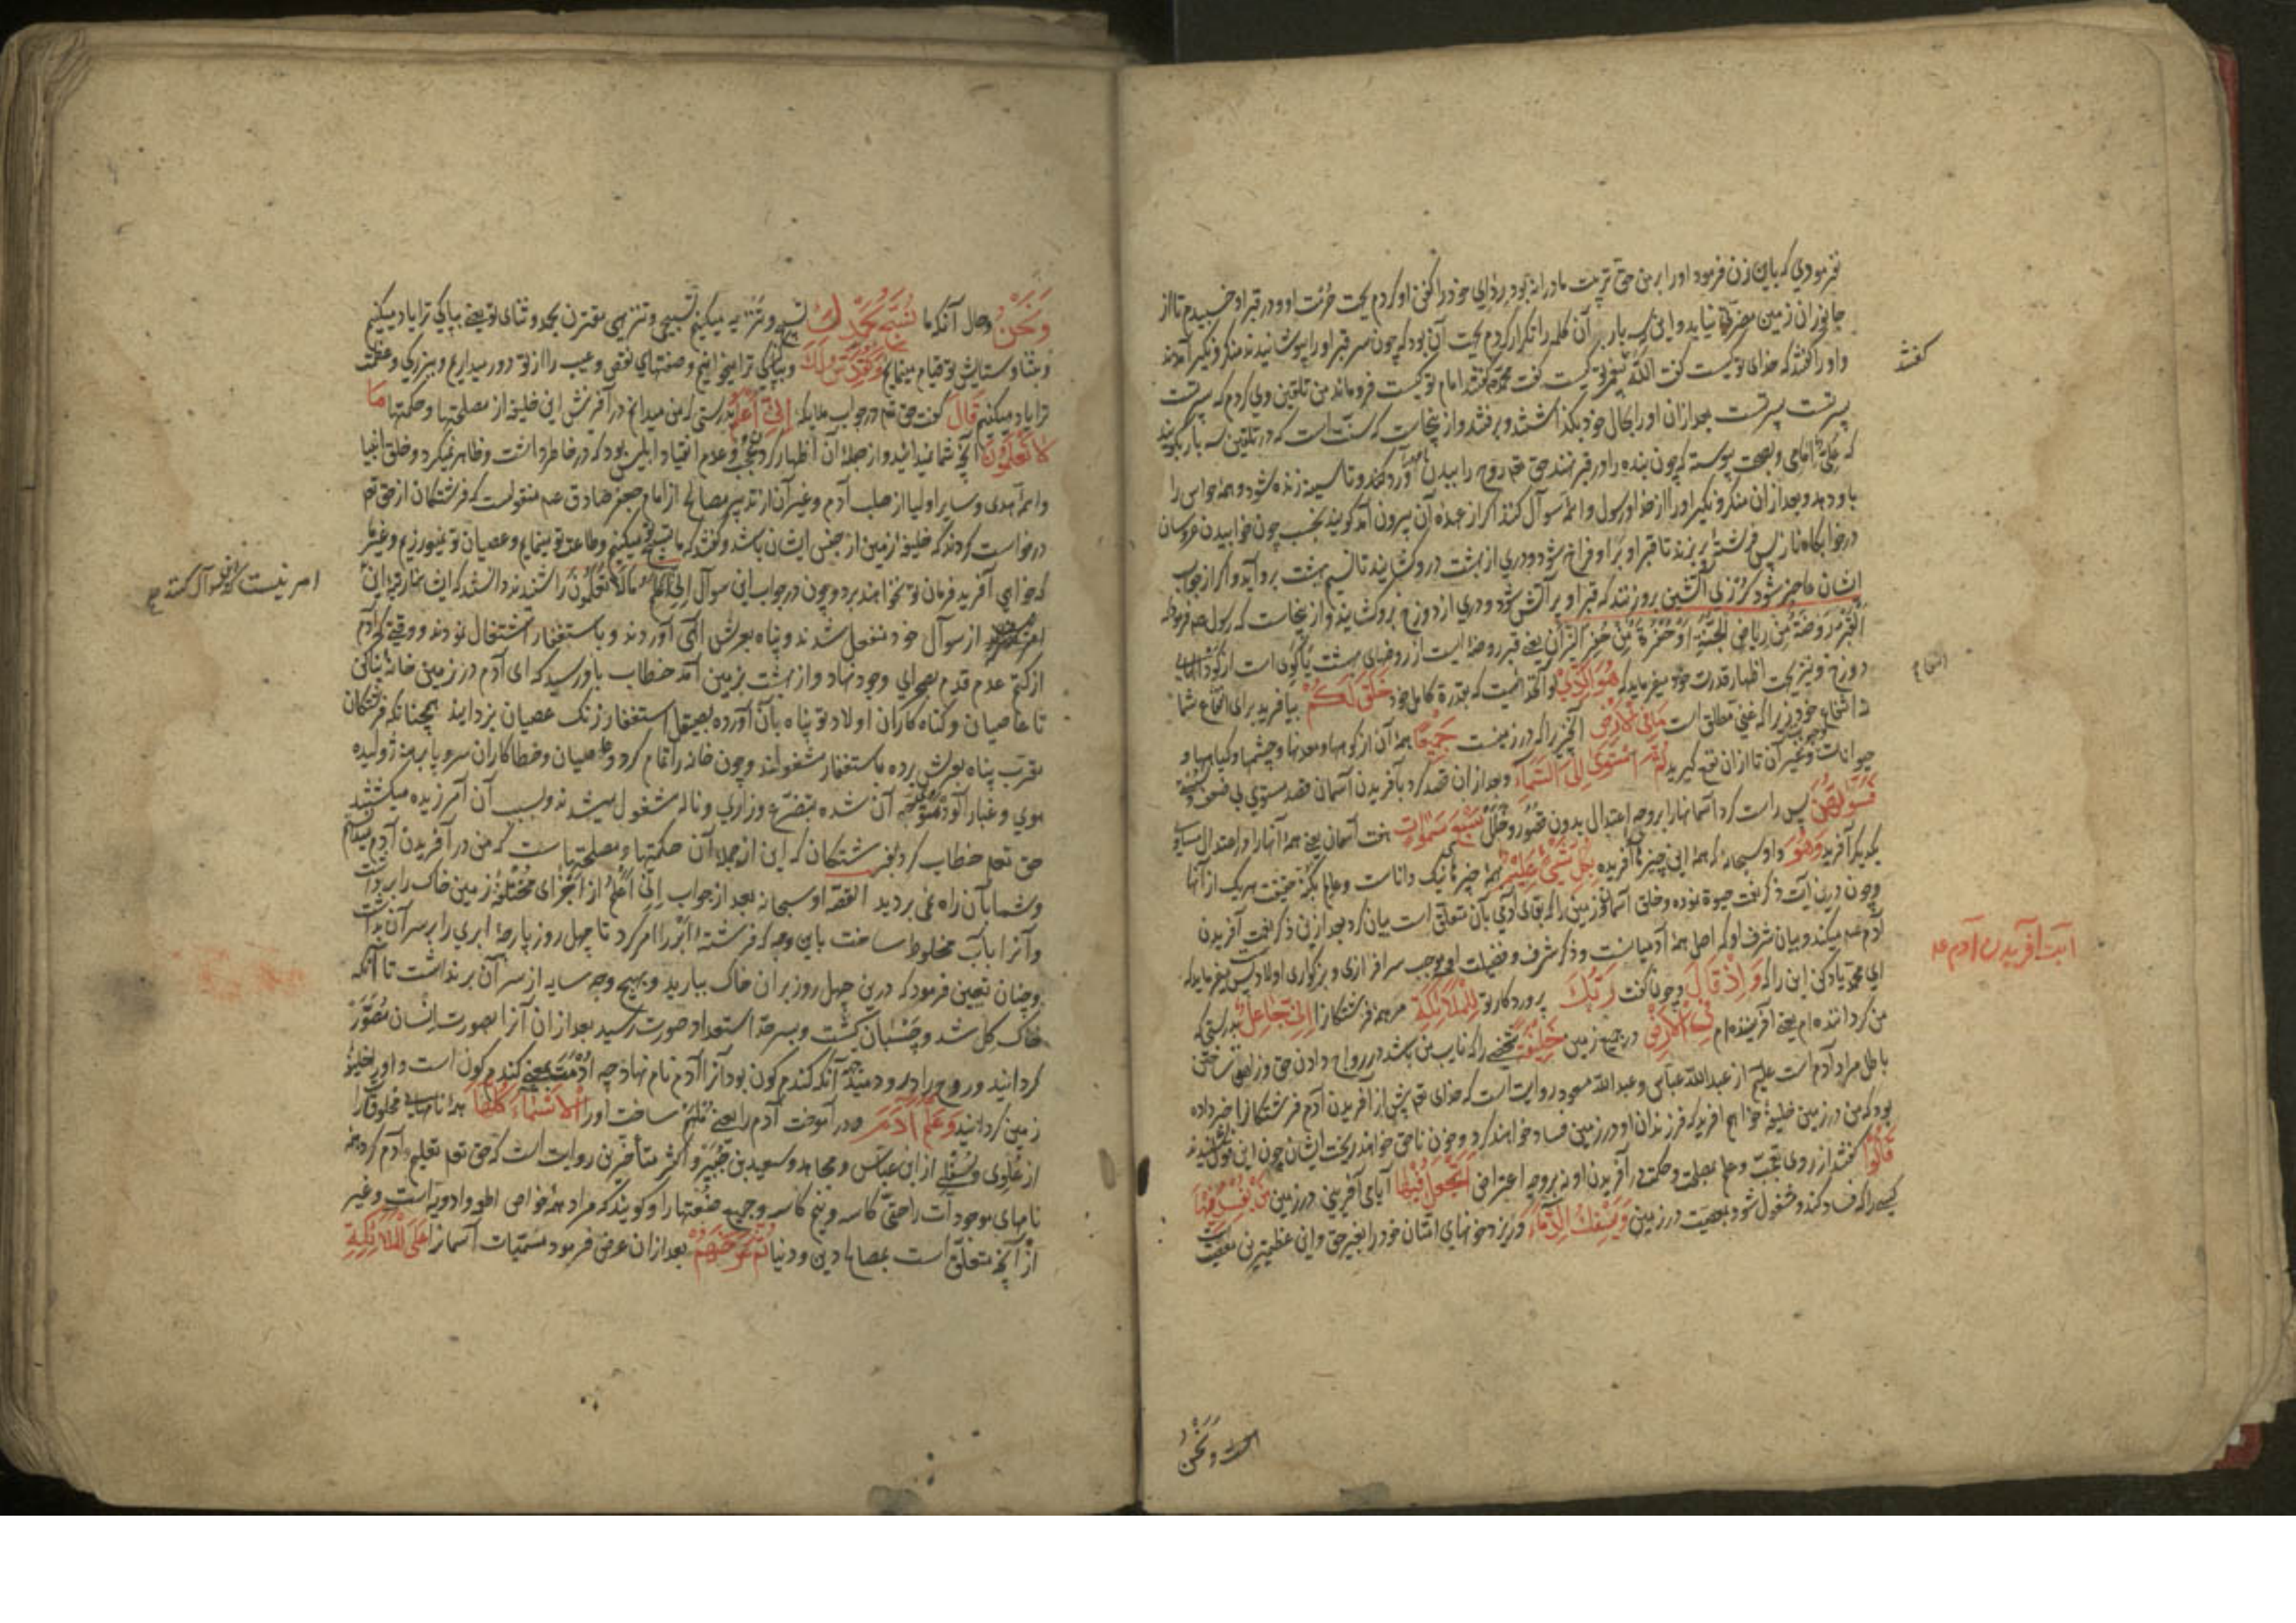 نفرمودی که باین زن فرمود او را بر من حق تربیت مادرانه بود ردای خود را کفن او کردم بجهت حرمت او و در قبر او خسبیدم تا از
جانوران زمین مضرتی نیابد و این که بار آن کلمه را تکرار کردم بجهت آن بود که چون سر قبر او را پوشانیدند منکر و نکیر آمدند
و او را گفتند که خدای تو کیست گفت الله پیغمبر تو کیست گفت محمد گفتند امام تو کیست فروماند من تلقین وی کردم که پسرت
پسرت پسرت بعد از آن او را بحال خود بگذاشتند و برفتند و از اینجاست که سنت است که در تلقین سه بار بگویند
که علی امامی و بصحت پیوسته که چون بنده را در قبر نهند حق تعم روح را ببدن او رد کند و تا سینه زنده شود و همه حواس را
باو دهد و بعد از آن منکر و نکیر او را از خدا و رسول و ائمه سوآل کنند اگر از عهده آن بیرون آمد گویند بخسب چون خوابیدن عروسان
در خوابگاه ناز پس فرشته بر بزند تا قبر او فراخ شود و دری از بهشت درو گشایند تا نسیم بهشت برو آید و اگر از جواب
ایشان عاجز شود گرزی آتشین برو زنند که قبر او پر آتش شود و دری از دوزخ برو گشایند و از اینجاست که رسول صم فرموده
القبر روضة من ریاض الجنة او حفرة من حفر النیران یعنی قبر روضه ایست از روضهای بهشت یا گوی است از گودالهای
دوزخ و نیز بجهت اظهار قدرت خود میفرماید که هو الذی او آنخدائیست که بقدرة کامل خود خلق لکم بیافرید برای انتفاع شما
نه انتفاع خود زیرا که غنی مطلق است ما فی الارض آنچیز را که در زمینست جمیعا همه آن از کوهها و معدنها و چشمها و گیاهها و
حیوانات و غیر آن تا از آن نفع گیرید ثم استوی الی السماء و بعد از آن قصد کرد بآفریدن آسمان قصد مستوی بی فسخ و
فسویهن پس راست کرد آسمانها را بر وجه اعتدال بدون قصور و خلل سبع سموات هفت آسمان یعنی همه آنها را در اعتدال مساوی
یکدیگر آفرید وهو و او سبحانه که همه این چیزها آفریده بکل شیء علیم بهمه چیزها نیک داناست و عالم بکنه حقیقت هر یک از آنها
و چون درین آیت ذکر نعمت حیوة نموده و خلق آسمان و زمین را که بقای آدمی بآن متعلق است بیان کرد بعد ازین ذکر نعمت آفریدن
آدم عم میکند و بیان شرف او که اصل همه آدمیانست و ذکر شرف و فضیلت او موجب سرافرازی و بزرگواری اولاد پس میفرماید که
ای محمد یاد کن این را که واذ قال و چون گفت ربک پروردگار تو للملائکة مر همه فرشتگان را انی جاعل بدرستی که
من گرداننده ام یعنی آفریننده ام فی الارض در جمیع زمین خلیفة شخصی را که نایب من باشد در رواج دادن حق و زاهق ساختن
باطل مراد آدم است علیم از عبدالله عباس و عبدالله مسعود روایت است که خدای تعم پیش از آفریدن آدم فرشتگان را خبر داده
بود که من در زمین خلیفه خواهم آفرید که فرزندان او در زمین فساد خواهند کرد و خون ناحق خواهند ریخت ایشان چون این قول شنیدند
قالوا گفتند از روی تعجب و علم بمصلحت و حکمت در آفریدن او نه بر وجه اعتراض اتجعل فیها آیا می آفرینی در زمین من یفسد فیها
کسی را که فساد کند و مشغول شود بمعصیت در زمین ویسفک الدماء و ریزد خونهای امثال خود را بغیر حق و این عظیمترین معصیت
است و نحن
گفتند
آیت آفریدن آدم عم
ونحن و حال آنکه ما نسبح بحمدک تسبیح و تنزیه میکنیم تسبیحی و تنزیهی مقترن بحمد و ثنای تو یعنی بپاکی ترا یاد میکنیم
و بثنا و ستایش تو قیام مینمایم ونقدس لک و بپاکی ترا میخوانیم و صفتهای نقص و عیب را از تو دور میداریم و ببزرگی و عظمت
ترا یاد میکنیم قال گفت حق تعم در جواب ملایکه انی اعلم بدرستی که من میدانم در آفرینش این خلیفه از مصلحتها و حکمتها ما
لا تعلمون آنچه شما نمیدانید و از جمله آن اظهار کردن عجب و عدم انقیاد ابلیس بود که در خاطر داشت و ظاهر نمیکرد و خلق انبیا
و ائمه هدی و سایر اولیا از صلب آدم و غیر آن از تدبیر مصالح از امام جعفر صادق عم منقولست که فرشتگان از حق تعم
درخواست کردند که خلیفه زمین از جنس ایشان باشد و گفتند که ما تسبیح تو میکنیم و طاعت تو مینمایم و عصیان تو نمیورزیم و غیر ما
که خواهی آفرید فرمان تو نخواهند برد و چون در جواب این سوآل انی اعلم ما لا تعلمون را شنیدند دانستند که ایشانرا رتبه این
از سوآل خود منفعل شدند و پناه بعرش الهی آوردند و باستغفار اشتغال نمودند و وقتی که آدم
از کتم عدم قدم بصحرای وجود نهاد و از بهشت بزمین آمد خطاب باو رسید که ای آدم در زمین خانه بنا کن
تا عاصیان و گناه کاران اولاد تو پناه بآن آورده بصیقل استغفار زنگ عصیان بزدایند همچنانکه فرشتگان
مقرب پناه بعرش برده باستغفار مشغولند و چون خانه را تمام کرد و عاصیان و خطاکاران سر و پا برهنه ژولیده
موی و غبارآلود متوجه آن شده بتضرع و زاری و ناله مشغول میشدند و بسبب آن آمرزیده میگشتند
حق تعم خطاب کرد بفرشتگان که این از جمله آن حکمتها و مصلحتهاست که من در آفریدن آدم میدانم
و شما بآن راه نمی بردید القصه او سبحانه بعد از جواب انی اعلم از اجزای مختلفه زمین خاک را برداشت
و آنرا بآب مخلوط ساخت باین وجه که فرشته ابر را امر کرد تا چهل روز پارچه ابری را بر سر آن بداشت
و چنان تعیین فرمود که درین چهل روز بر آن خاک ببارید و بهیچ وجه سایه از سر آن برنداشت تا آنکه
خاک گل شد و چسبان گشت و بسرحد استعداد صورت رسید بعد از آن آنرا بصورت انسان مصور
گردانید و روح را درو دمید و آنکه گندم گون بود آنرا آدم نام نهاد چه ادمت یعنی گندم گون است و او را خلیفه
زمین گردانید وعلم آدم و در آموخت آدم را یعنی ملهم ساخت او را الاسماء کلها همه نامهای مخلوقات را
از علوی و سفلی از ابن عباس و مجاهد و سعید بن جبیر و اکثر متأخرین روایت است که حق تعم تعلیم آدم کرد همه
نامهای موجودات را حتی کاسه و نیم کاسه و جمیع صنعتها را و گویند که مراد همه خواص اطعمه و ادویه است و غیر
از آنچه متعلق است بمصالح دین و دنیا ثم عرضهم بعد از آن عرض فرمود مسمیات آسمانرا علی الملائکة
امر نیست از این سوآل